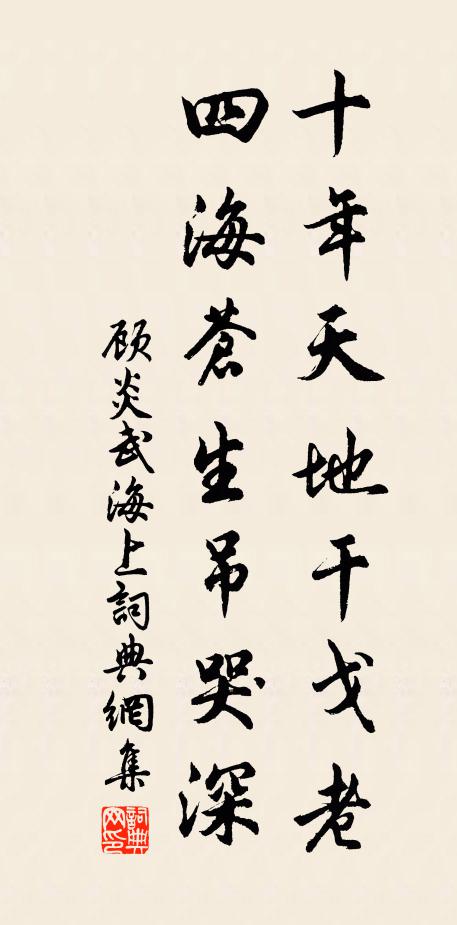 十年天地干戈老
四海蒼生吊哭深
顾炎武海上詞典網集
詞典网印